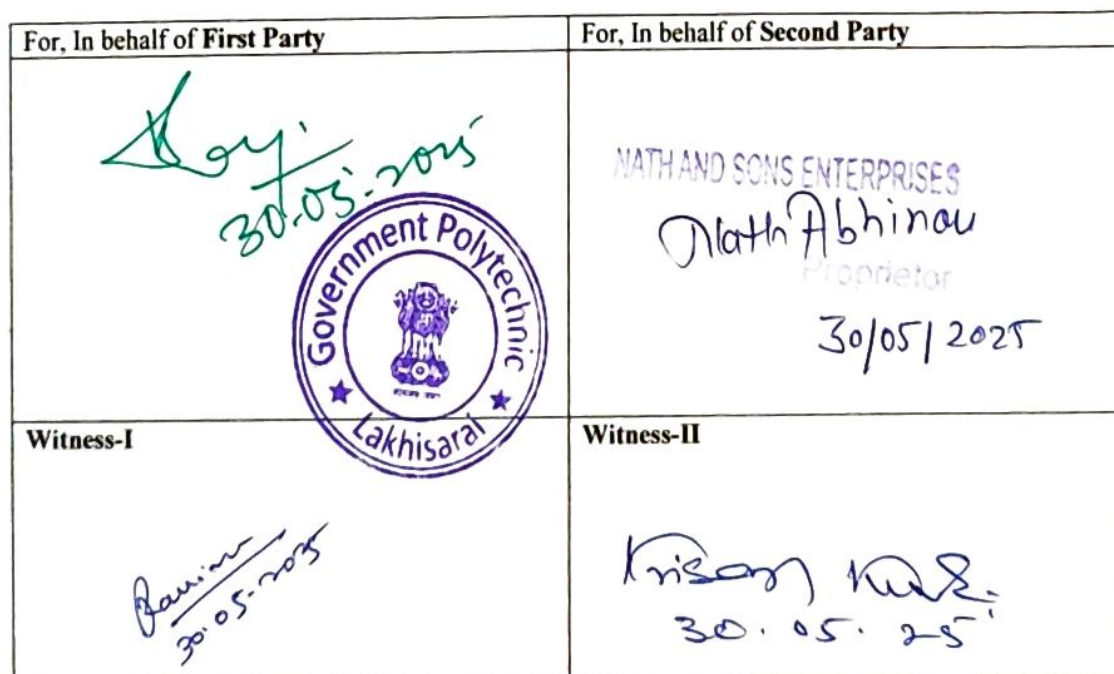 For, In behalf of First Party
For, In behalf of Second Party
30.05.2025
Government Polytechnic
Lakhisarai
NATH AND SONS ENTERPRISES
Nath Abhinav
Proprietor
30/05/2025
Witness-I
Witness-II
30.05.2025
30.05.25